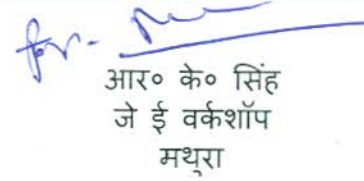 for-
आर० के० सिंह
जे ई वर्कशॉप
मथुरा